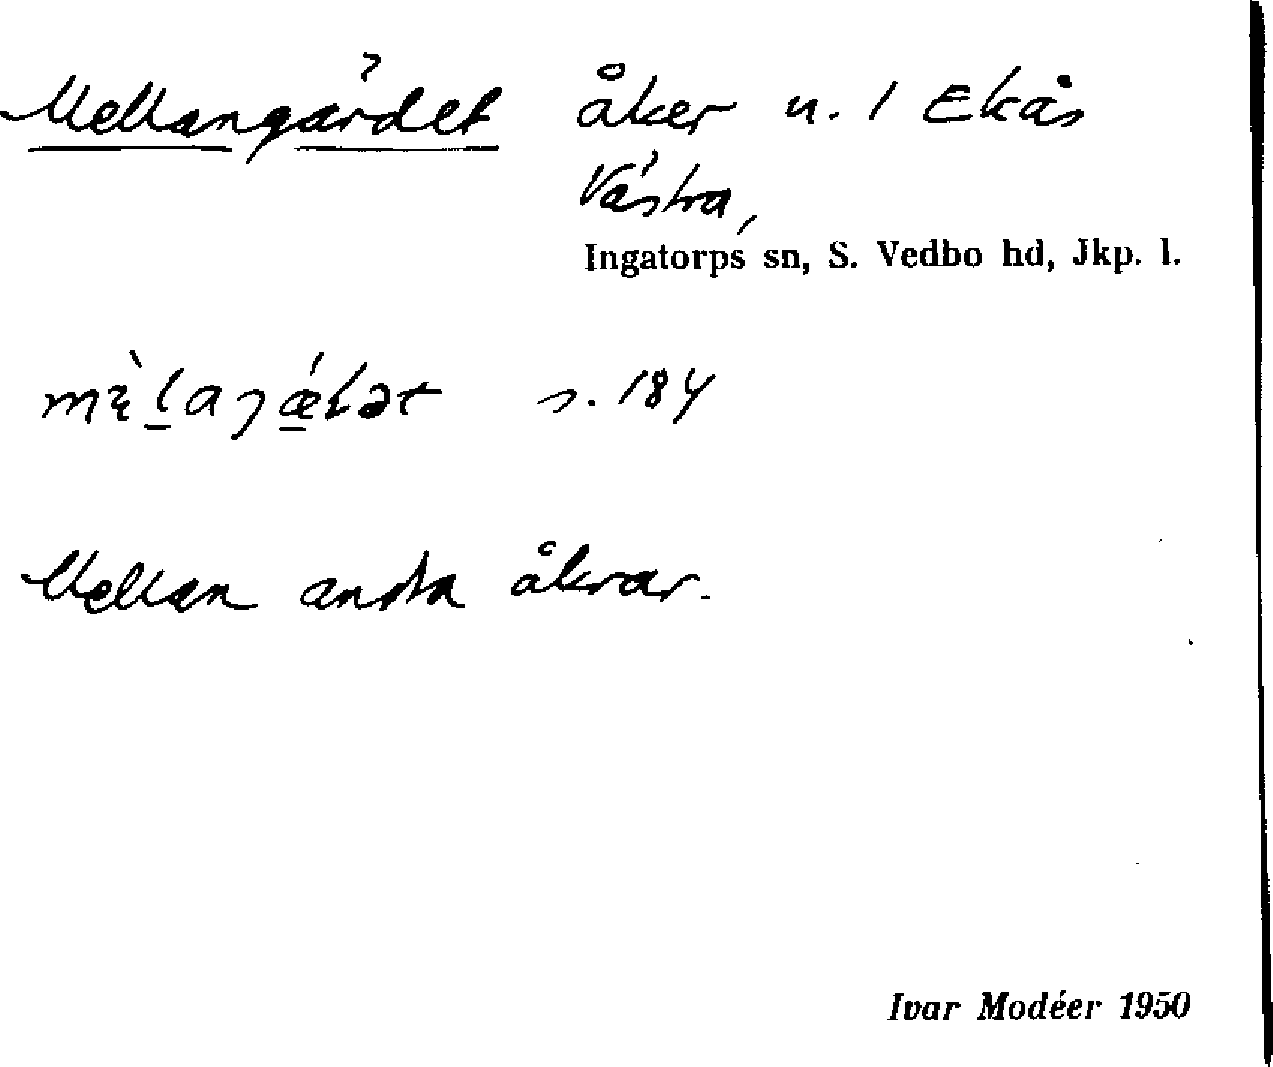 Mellangärdet åker u. 1 Ekås
Västra,
Ingatorps sn, S. Vedbo hd, Jkp. l.
s. 184
Mellan andra åkrar.
Ivar Modéer 1950